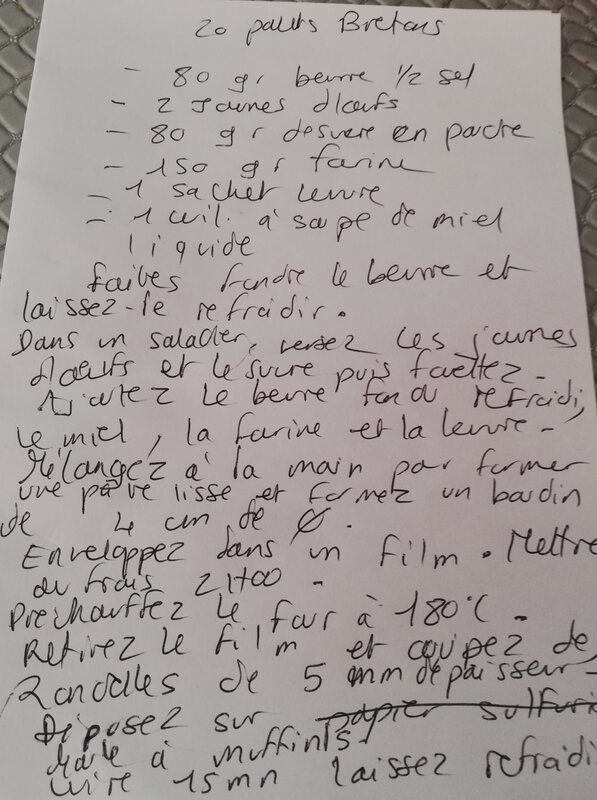 20 palets Bretons
- 80 gr beurre 1/2 sel
- 2 Jaunes d'œufs
- 80 gr de sucre en poudre
- 150 gr farine
- 1 sachet levure
- 1 cuil. à soupe de miel
liquide
faites fondre le beurre et
laissez-le refroidir.
Dans un saladier, versez les jaunes
d'œufs et le sucre puis fouettez.
Ajoutez le beurre fondu refroidi,
le miel, la farine et la levure.
Mélangez à la main pour former
une pâte lisse et formez un boudin
de 4 cm de Ø.
Enveloppez dans un film. Mettre
au frais 2H00.
Préchauffez le four à 180°C.
Retirez le film et coupez de
Rondelles de 5 mm d'épaisseur
Déposez sur papier sulfuri
Moule à muffins.
Cuire 15mn laissez refroidi